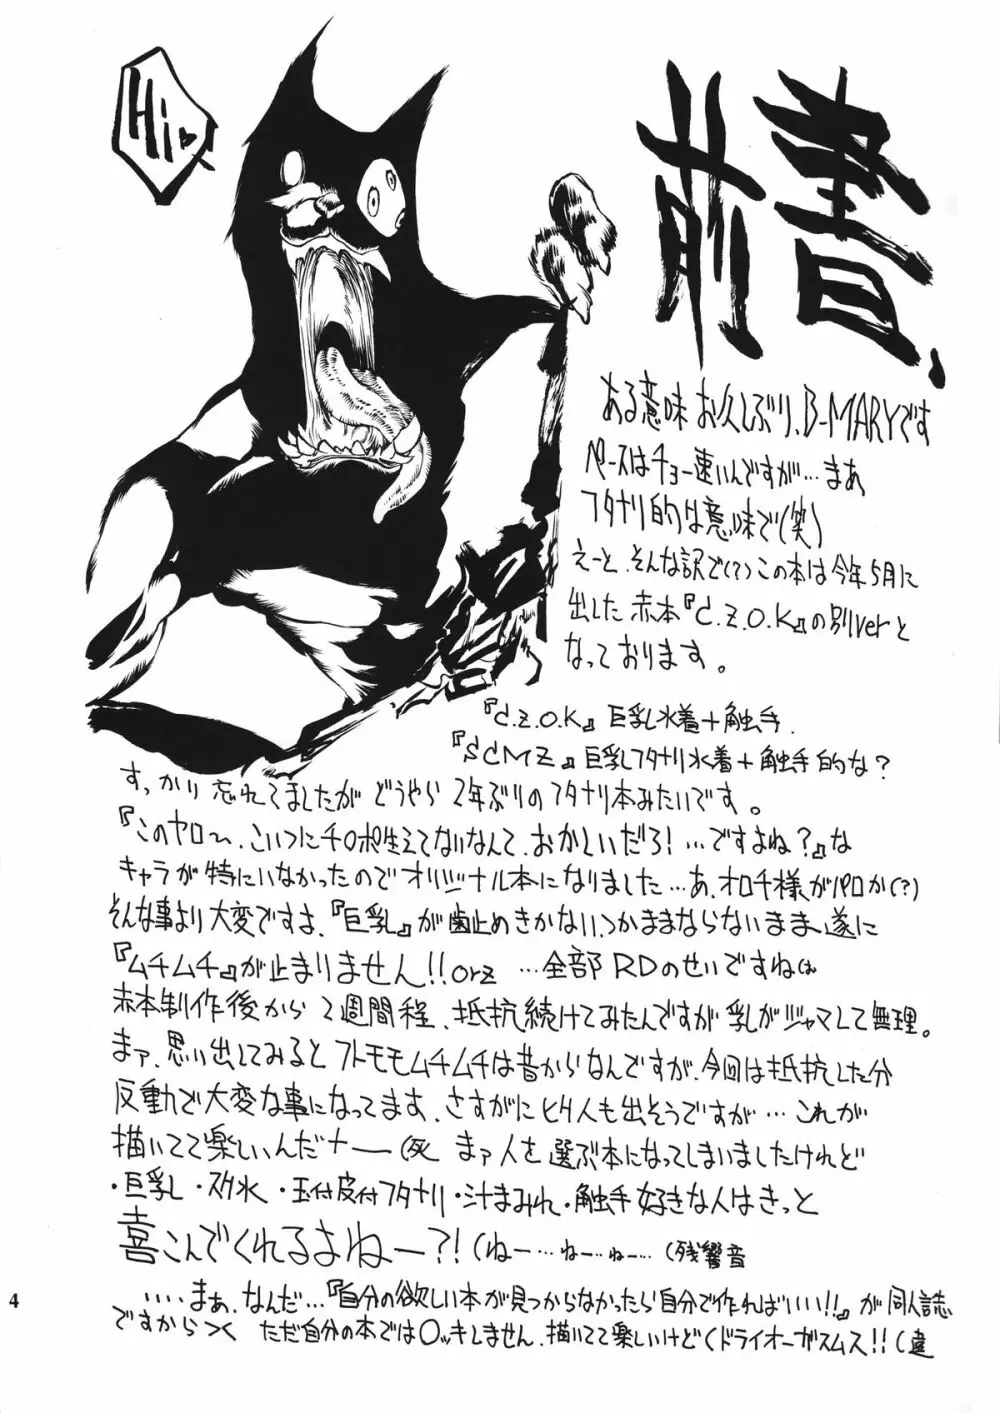 Hi♥
前書、
ある意味お久しぶり、B-MARYです
ペースはチョー速いんですが…まぁ
フタナリ的は意味で(笑)
えーと、そんな訳で(?)この本は今年5月に
出した赤本『C.Z.O.K』の別verと
なっております。
『C.Z.O.K』巨乳水着+触手
『SCMZ』巨乳フタナリ水着+触手的な?
すっかり忘れてましたがどうやら2年ぶりのフタナリ本みたいです。
『このヤロ〜、こいつにチ○ポ生えてないなんて、おかしいだろ!…ですよね?』な
キャラが特にいなかったのでオリジナル本になりました…あ、オロチ様がパロか(?)
そんな事より大変ですよ、『巨乳』が歯止めきかない、つかままならないまま、遂に
『ムチムチ』が止まりません!!orz …全部RDのせいですねは
赤本制作後から2週間程、抵抗続けてみたんですが乳がジャマして無理。
まァ、思い出してみるとフトモモムチムチは昔からなんですが、今回は抵抗した分
反動で大変な事になってます、さすがにヒク人も出そうですが…これが
描いてて楽しいんだナー(死 まァ人を選ぶ本になってしまいましたけれど
・巨乳・スク水・玉付皮付フタナリ・汁まみれ・触手好きな人はきっと
喜こんでくれるよねー?!(ねー…ねー…ねー…(残響音
....まぁ、なんだ…『自分の欲しい本が見つからなかったら自分で作ればいい!!』が同人誌
ですからつ< ただ自分の本では○ッキしません、描いてて楽しいけど(ドライオーガスムス!!(違
4